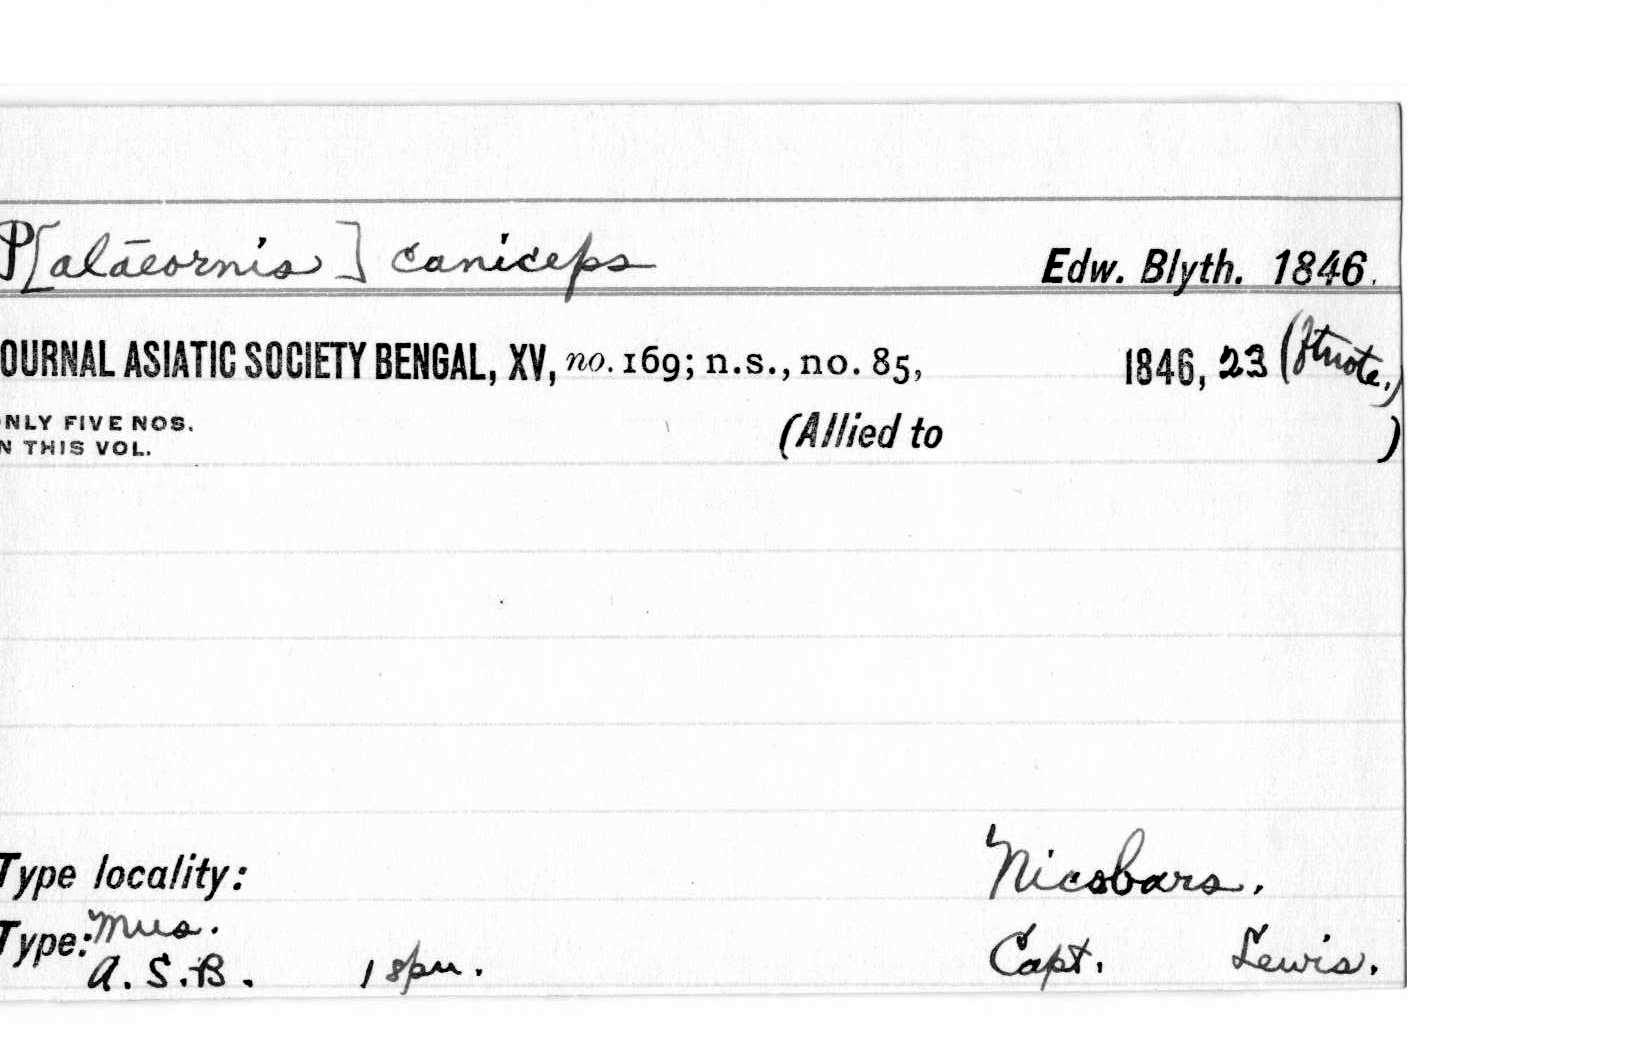 P[alaeornis] caniceps Edw. Blyth. 1846.
OURNAL ASIATIC SOCIETY BENGAL, XV, no. 169; n.s., no. 85, 1846, 23 (ftnote.)
NLY FIVE NOS.
N THIS VOL.
(Allied to )
Type locality: Nicobars.
Type: Mus.
A.S.B. 1 spn. Capt. Lewis.